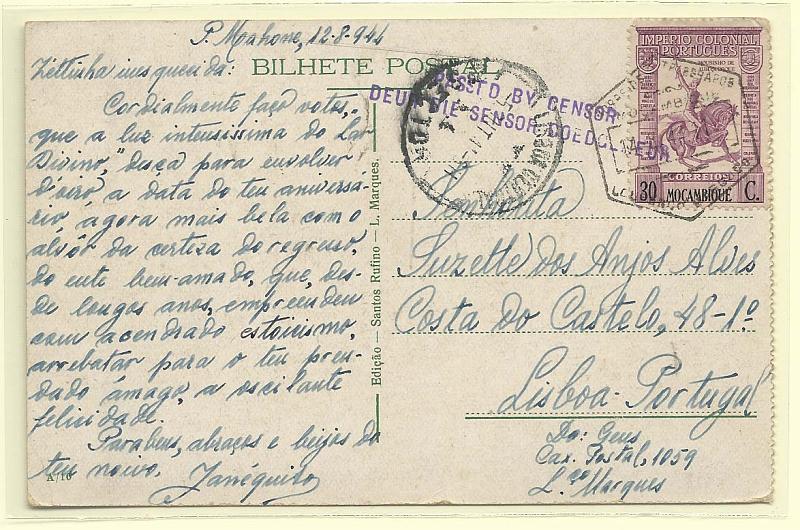 P. Mahone, 12-8-944
Zettinha inesquecida:
BILHETE POSTAL
Cordialmente faço votos,
que a luz intensissima do
Divino, "desça para envolver
d'oiro a data do teu aniversá-
rio, ágora mais bela com o
alvôr da certeza do regresso,
do ente bem-amado, que, des-
de longos anos, empreendeu
com acendrado estoicismo,
arrebatar para o teu pren-
dado âmago, a oscilante
felicidade.
Parabens, abraços e beijos do
teu noivo,
A/16
Edição — Santos Rufino — L. Marques.
PASSED BY CENSOR
DEUR DIE SENSOR GOEDGEKEUR
IMPÉRIO COLONIAL
PORTUGUÊS
MOUSINHO DE
CORREIOS
30 MOÇAMBIQUE C.
Senhorita
Suzette dos Anjos Alves
Costa do Castelo, 48-1º
Lisboa-Portugal
Do: Geus
Cax. Postal, 1059
L.ço Marques